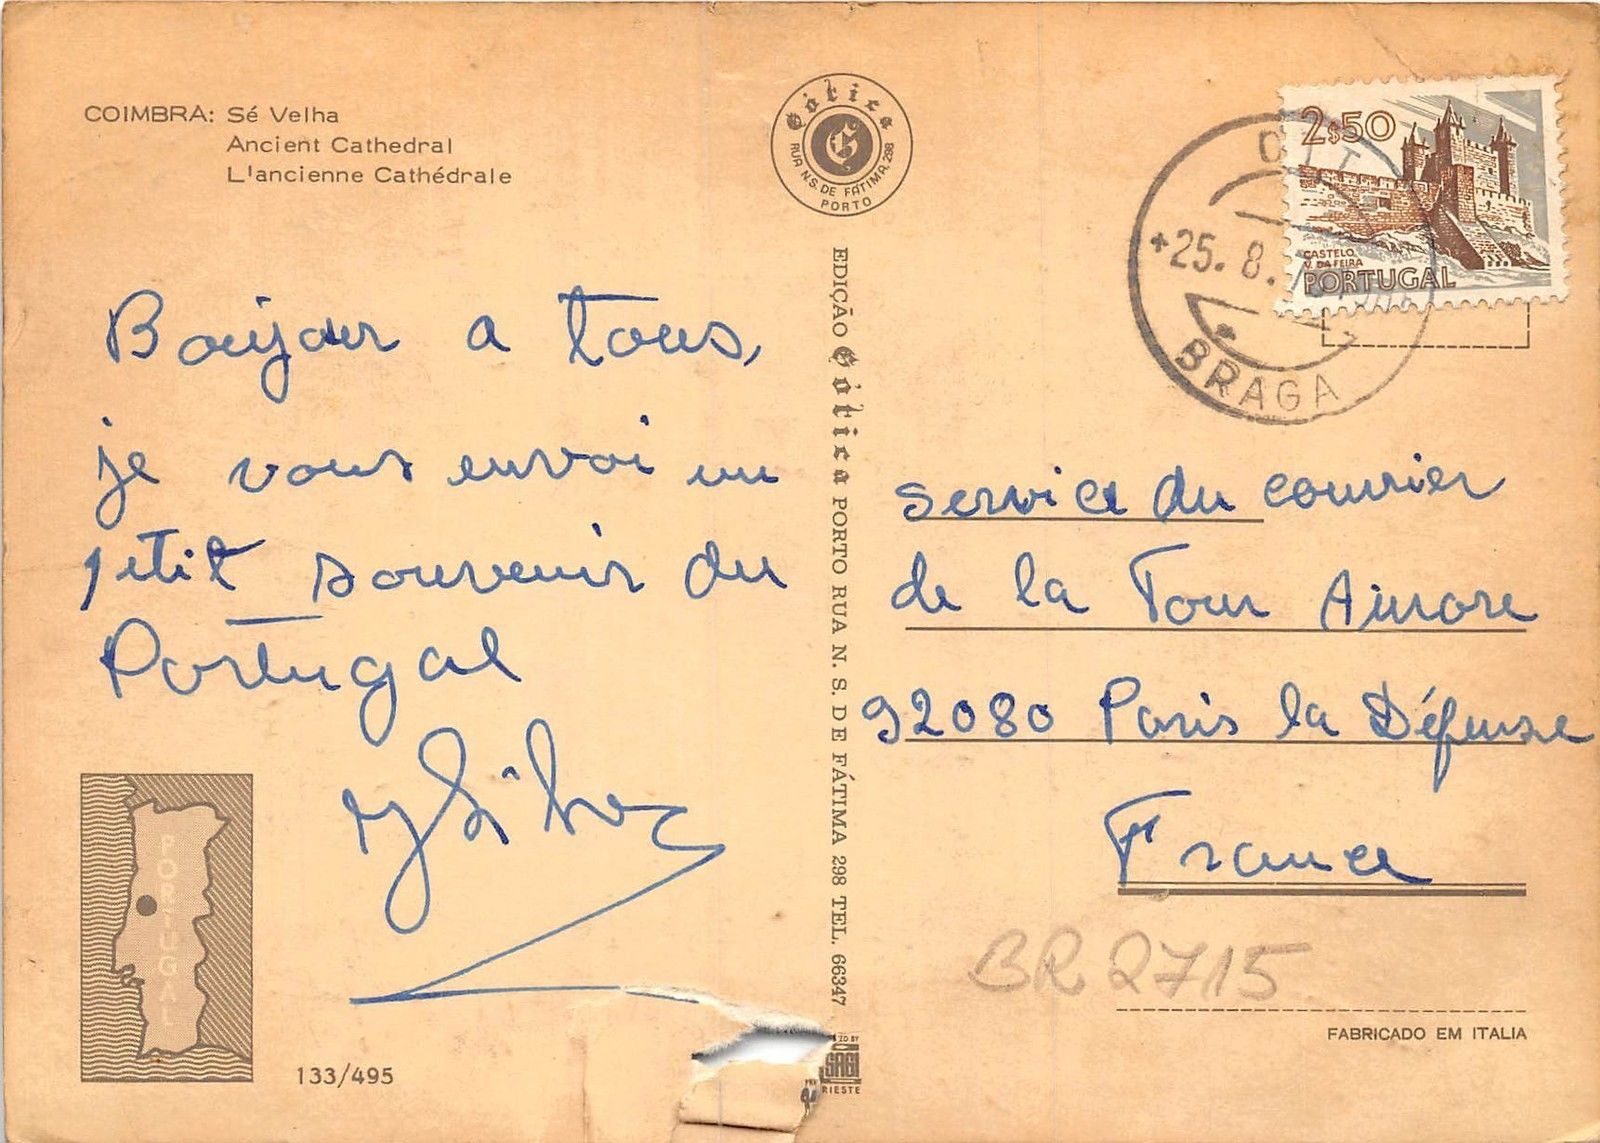 COIMBRA: Sé Velha
Ancient Cathedral
L'ancienne Cathédrale
Gótica
RUA N.S. DE FÁTIMA, 298
PORTO
2$50
CASTELO
V. DA FEIRA
PORTUGAL
+25. 8.
BRAGA
Boujour a tous,
je vous envoi un
petit souvenir du
Portugal
EDIÇÃO Gótica PORTO RUA N. S. DE FÁTIMA 298 TEL. 66347
service du courrier
de la Tour Aurore
92080 Paris la Défense
France
BR 2715
PORTUGAL
133/495
SAGI
RIESTE
FABRICADO EM ITALIA